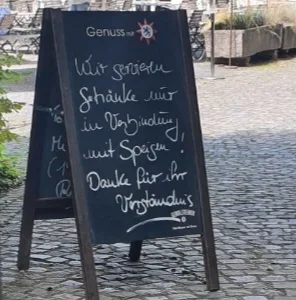 Genuss mit
Wir servieren
Getränke nur
in Verbindung
mit Speisen!
Danke für ihr
Verständnis